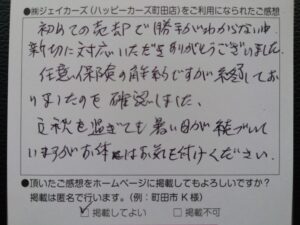 ●㈱ジェイカーズ(ハッピーカーズ町田店)をご利用になられたご感想
初めての売却で勝手がわからない中
親切に対応いただきありがとうございました。
任意保険の解約ですが継続してお
りましたのを確認しました。
立秋を過ぎても暑い日が続いて
いますがお体にはお気を付けください。
●頂いたご感想をホームページに掲載してもよろしいですか?
掲載は匿名で行います。(例:町田市 K 様)
☑掲載してよい □掲載不可